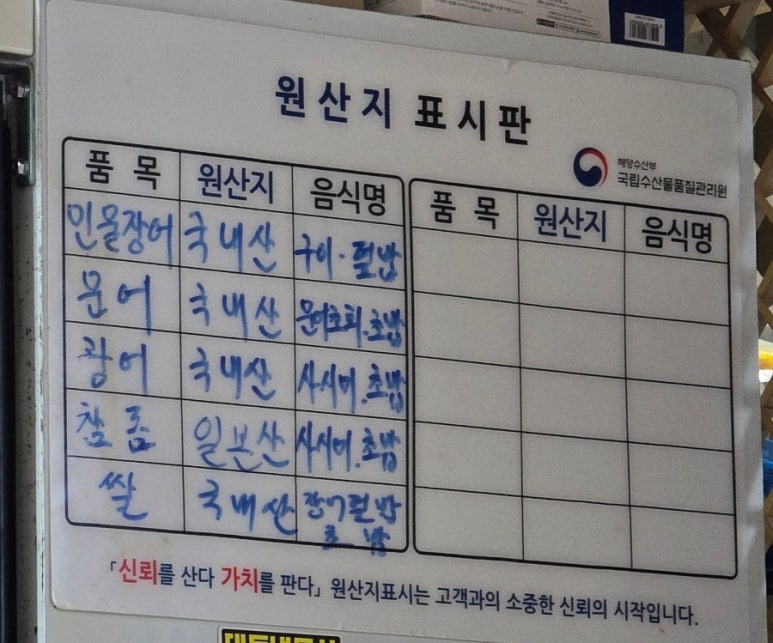 원산지 표시판
해양수산부
국립수산물품질관리원
품목 원산지 음식명 품목 원산지 음식명
민물장어 국내산 구이·덮밥
문어 국내산 문어초회.초밥
광어 국내산 사시미.초밥
참돔 일본산 사시미.초밥
쌀 국내산 장어덮밥
초밥
「신뢰를 산다 가치를 판다」 원산지표시는 고객과의 소중한 신뢰의 시작입니다.